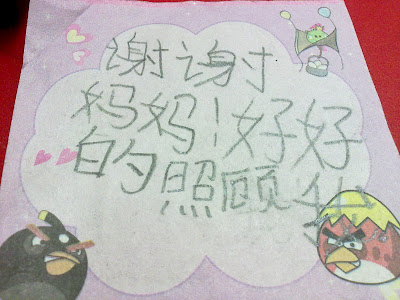 谢谢
妈妈!好好
的照顾我